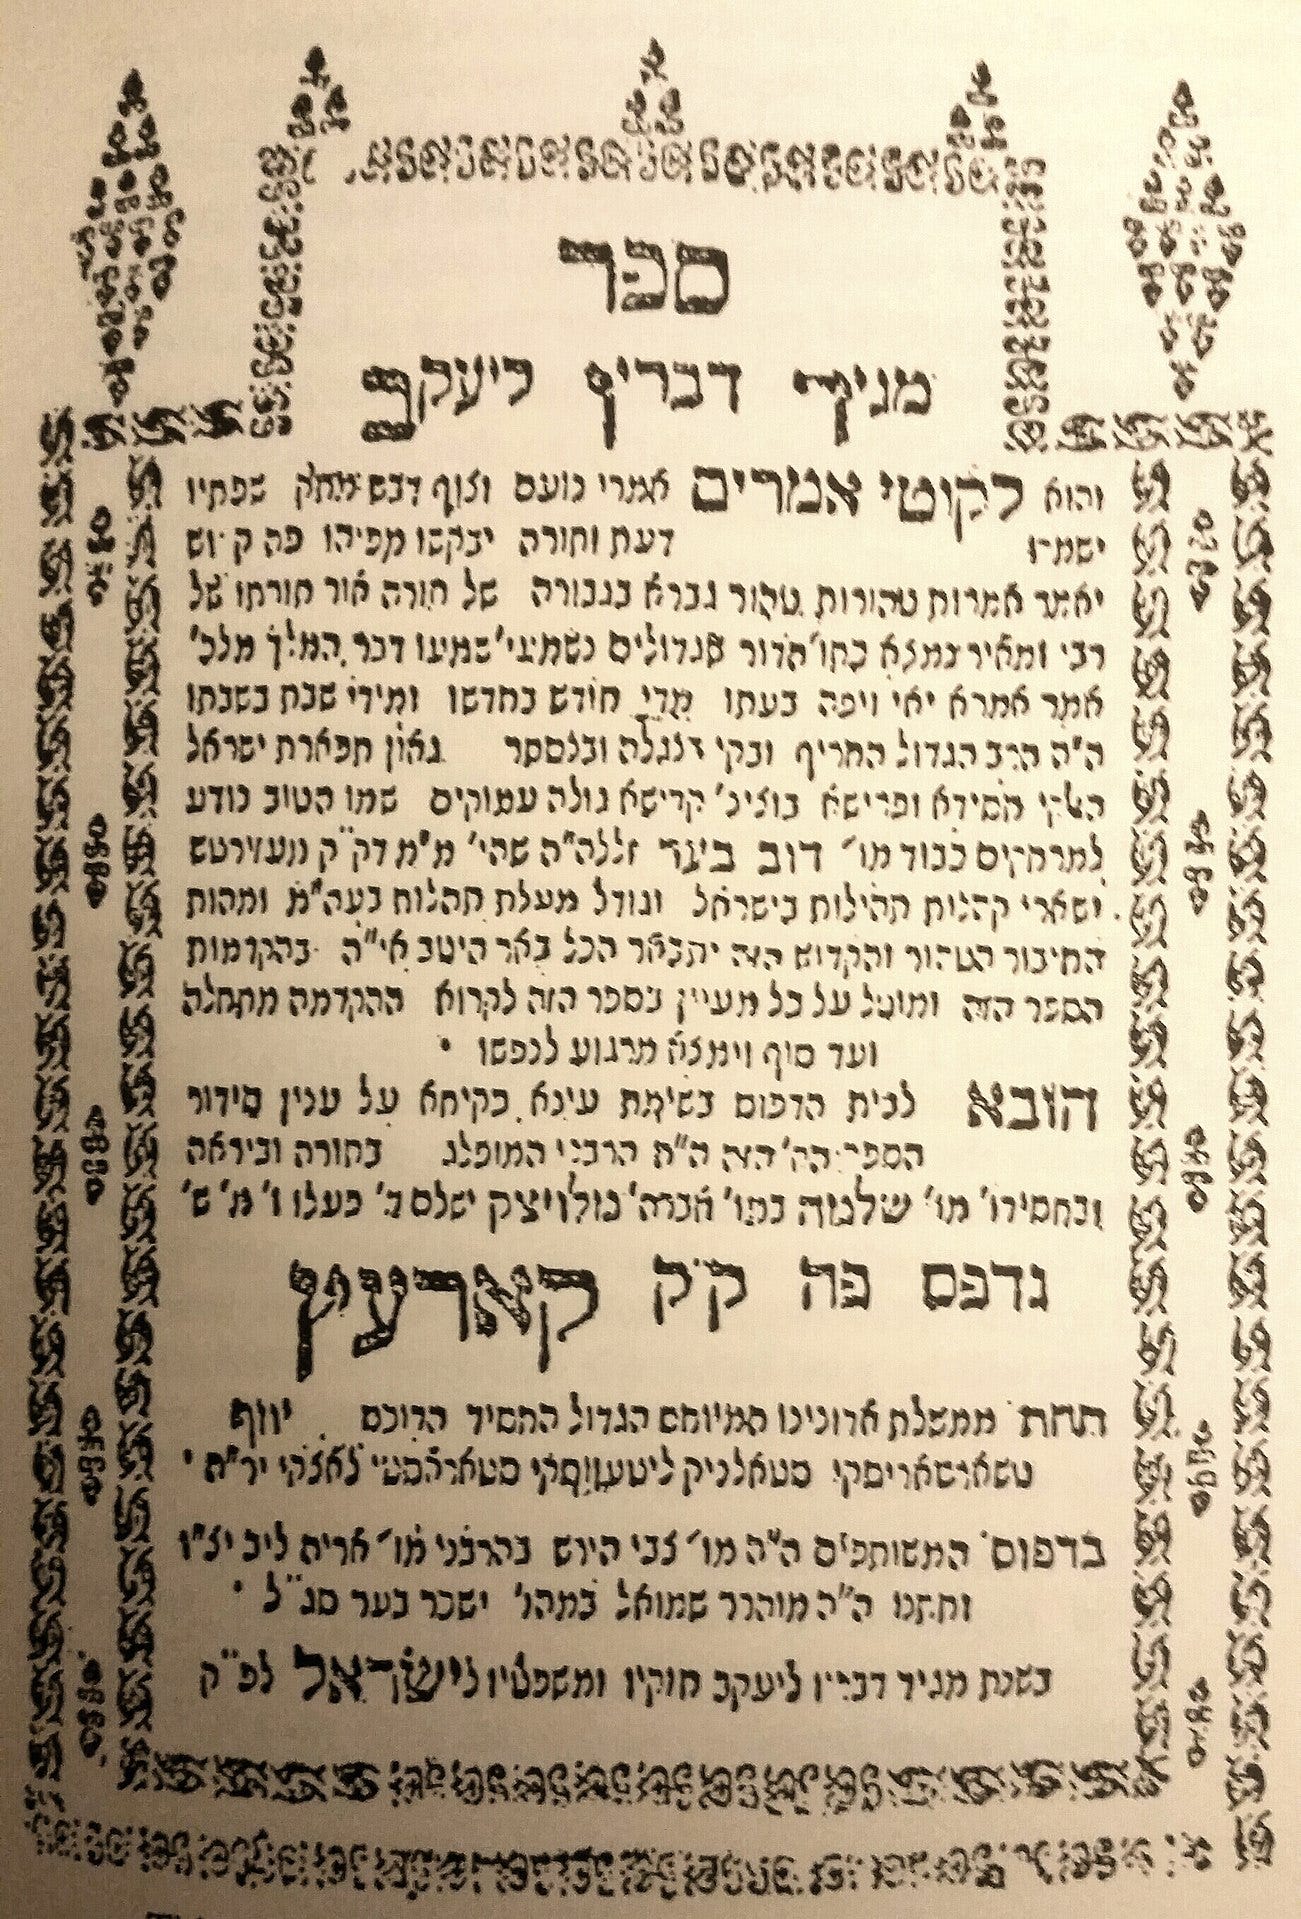 ספר
מגיד דבריו ליעקב
והוא לקוטי אמרים אמרי נועם וצוף דבש מתק שפתיו
דעת ותורה יבקשו מפיהו פה קדוש
יאמר אמרות טהורות טהור גברא בגבורה של תורה אור תורתו של
רבי ומאיר נמצא דבר המלך מלכי
אמר אמרא יאי ויפה בעתו מדי חודש בחדשו ומידי שבת בשבתו
ה״ה הרב הגדול החריף ובקי בנגלה ובנסתר גאון תפארת ישראל
חסידא ופרישא בוצינ' קדישא גולה עמוקים שמו הטוב נודע
למרחקים כבוד מו׳ דוב בער זללה״ה שהי׳ מ״מ דק״ק מעזירטש
ושארי קהלות תהילות בישראל וגודל מעלת ומהות
החיבור הטהור והקדוש הזה יתבאר הכל באר היטב אי״ה בהקדמות
הספר הזה ומוטל על כל מעיין בספר הזה לקרוא ההקדמה מתחלה
ועד סוף וימצא מרגוע לנפשו
הובא לבית הדפוס בשימת עינא בקיחא על ענין סידור
הספר הזה ה״ה הרבני המופלג בתורה וביראה
ובחסידו׳ מו׳ שלמה במו׳ אברה׳ מלויצק ישלם ד׳ פעלו
נדפס פה ק״ק קארעץ
תחת ממשלת אדונינו המיוחס הגדול החסיד הדוכס יוזף
טשארטאריסקי סטאלניק ליטעווסקי לאצקי יר״ה
בדפוס המשותפים ה״ה מו׳ צבי הירש בהרבני מו׳ ארי׳ ליב יצ״ו
וחתנו ה״ה מוהרר שמואל במהו׳ ישכר בער סג״ל
בשנת מגיד דבריו ליעקב חוקיו ומשפטיו לישראל לפ״ק